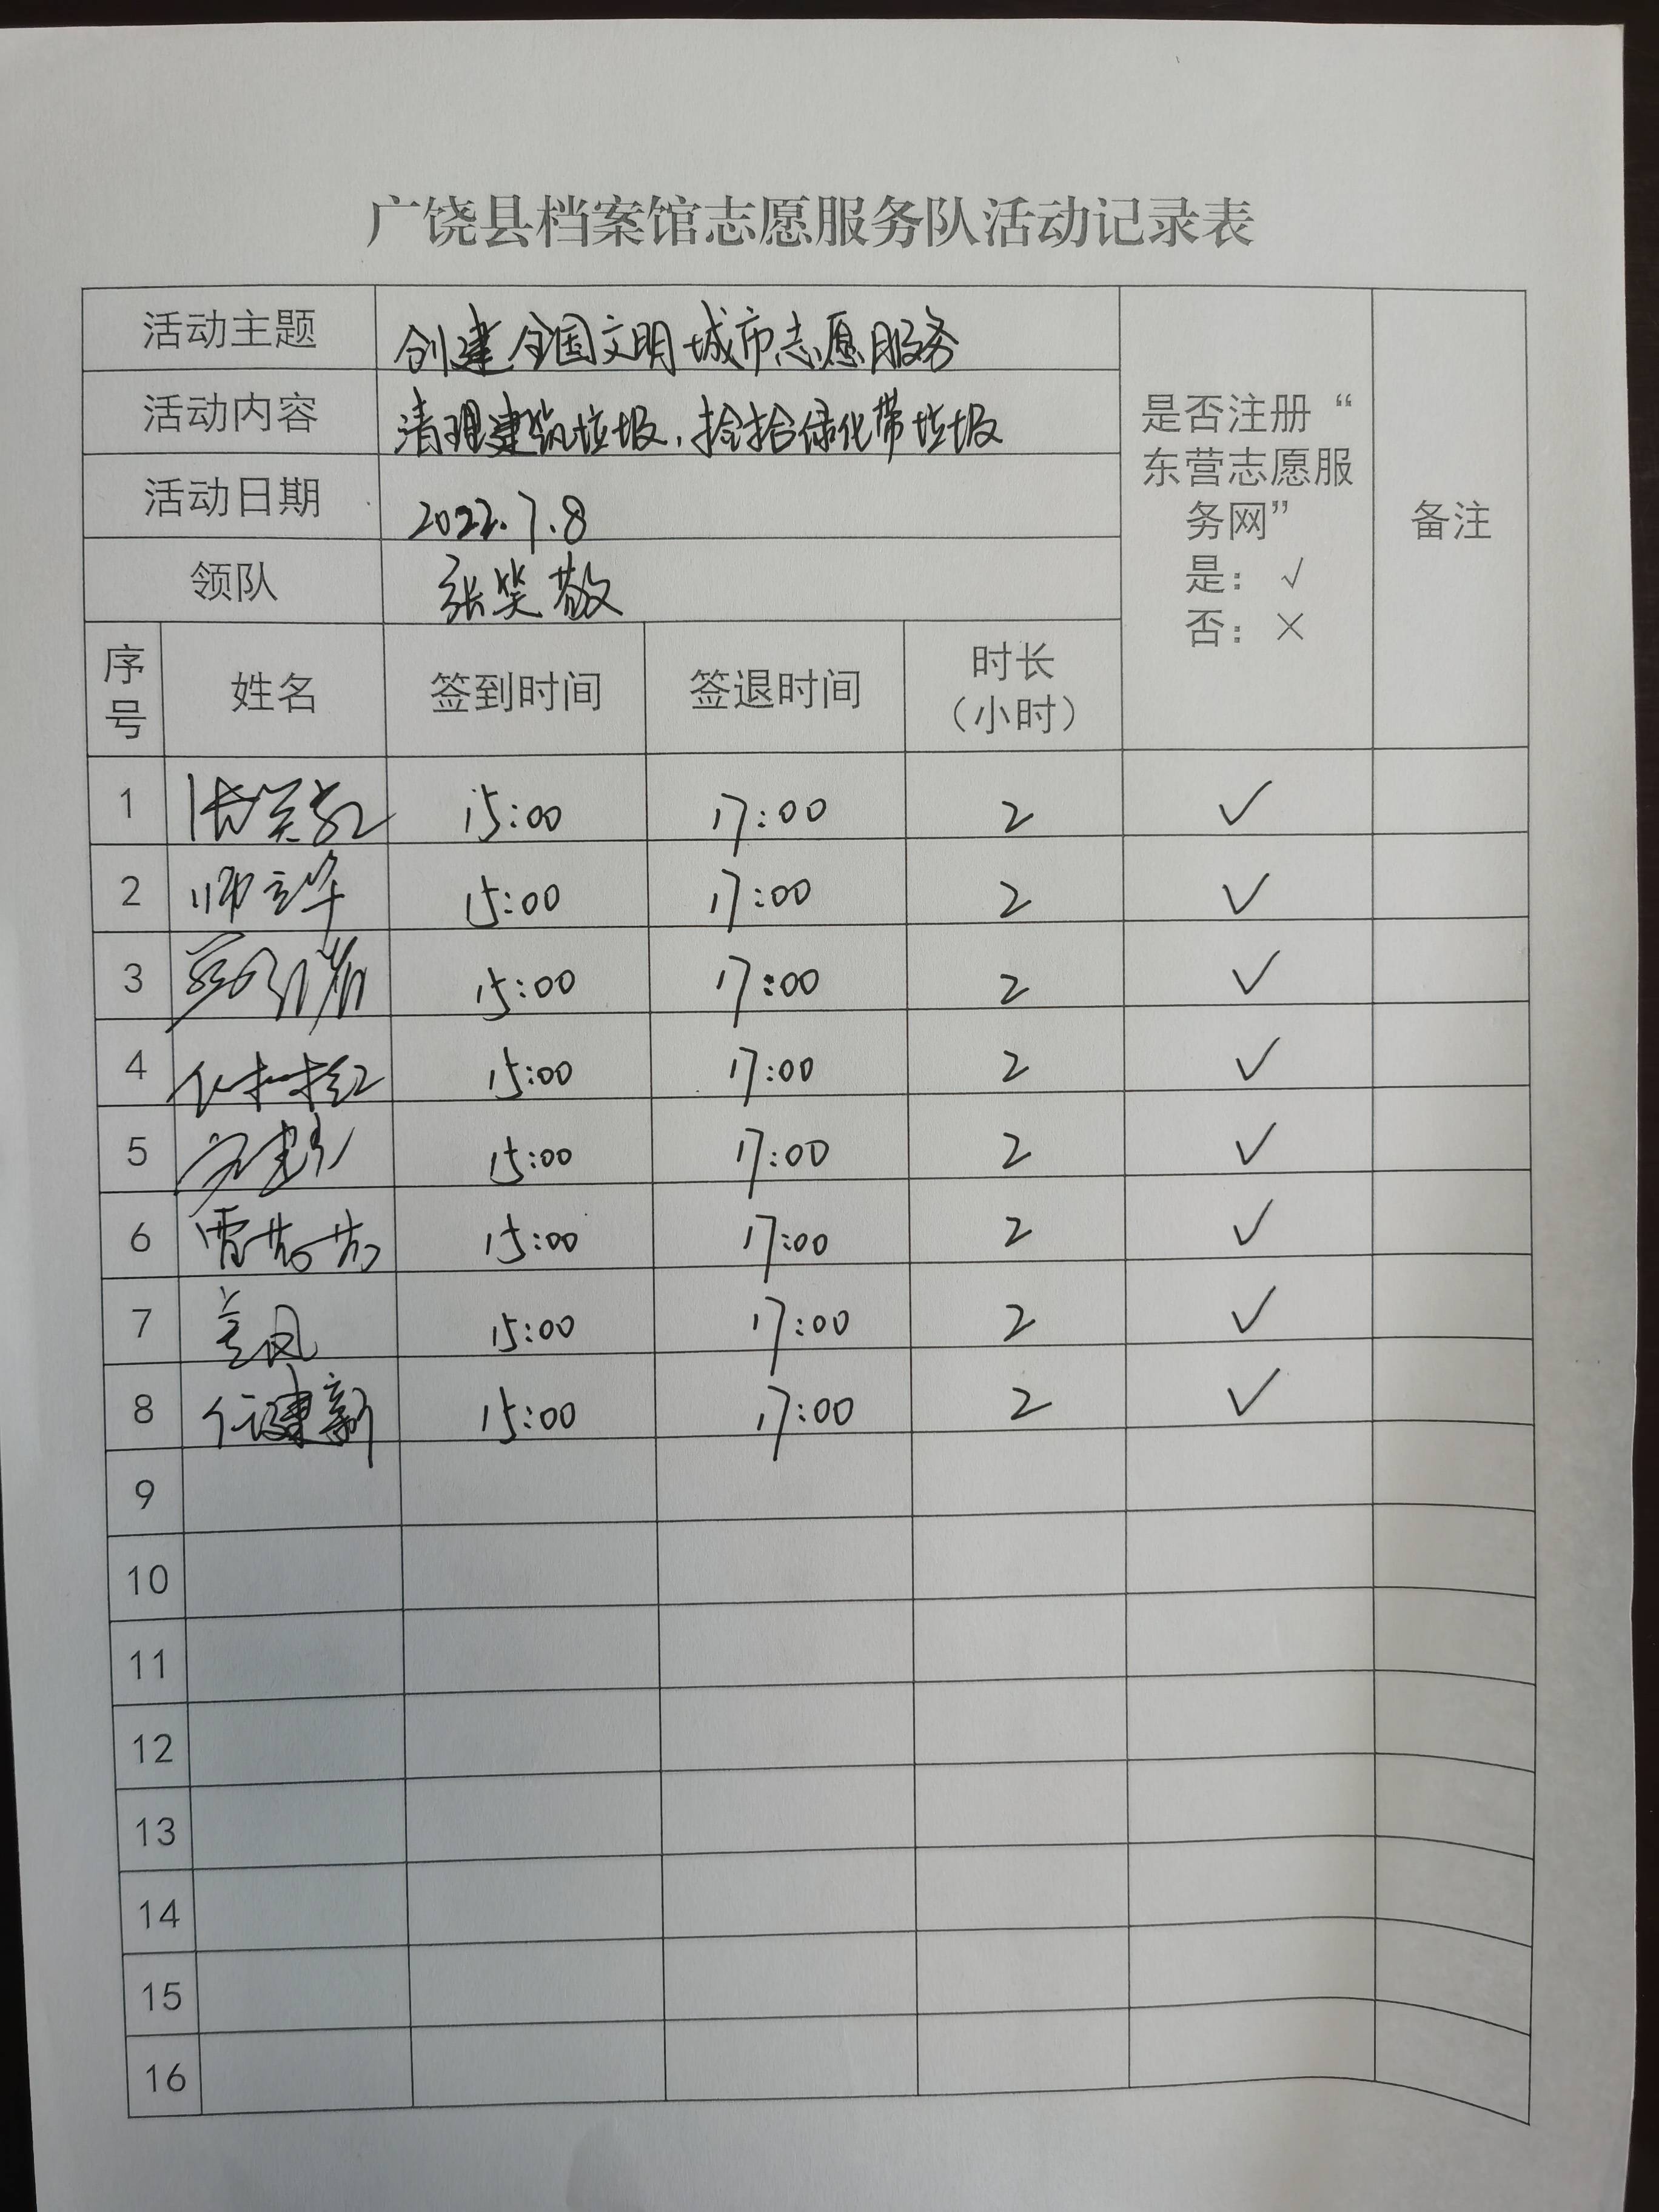 广饶县档案馆志愿服务队活动记录表
活动主题 创建全国文明城市志愿服务
活动内容 清理建筑垃圾,捡拾绿化带垃圾
活动日期 2022.7.8
领队 张笑敬
是否注册“
东营志愿服
务网”
是：√
否：×
备注
序号 姓名 签到时间 签退时间 时长（小时）
1 张笑敬 15:00 17:00 2 √
2 师立华 15:00 17:00 2 √
3 15:00 17:00 2 √
4 15:00 17:00 2 √
5 15:00 17:00 2 √
6 15:00 17:00 2 √
7 15:00 17:00 2 √
8 任建新 15:00 17:00 2 √
9
10
11
12
13
14
15
16